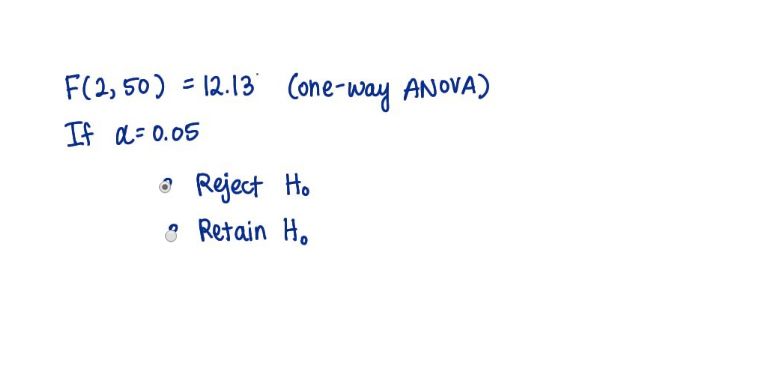 F(2, 50) = 12.13 (one-way ANOVA)
If α = 0.05
Reject H₀
Retain H₀